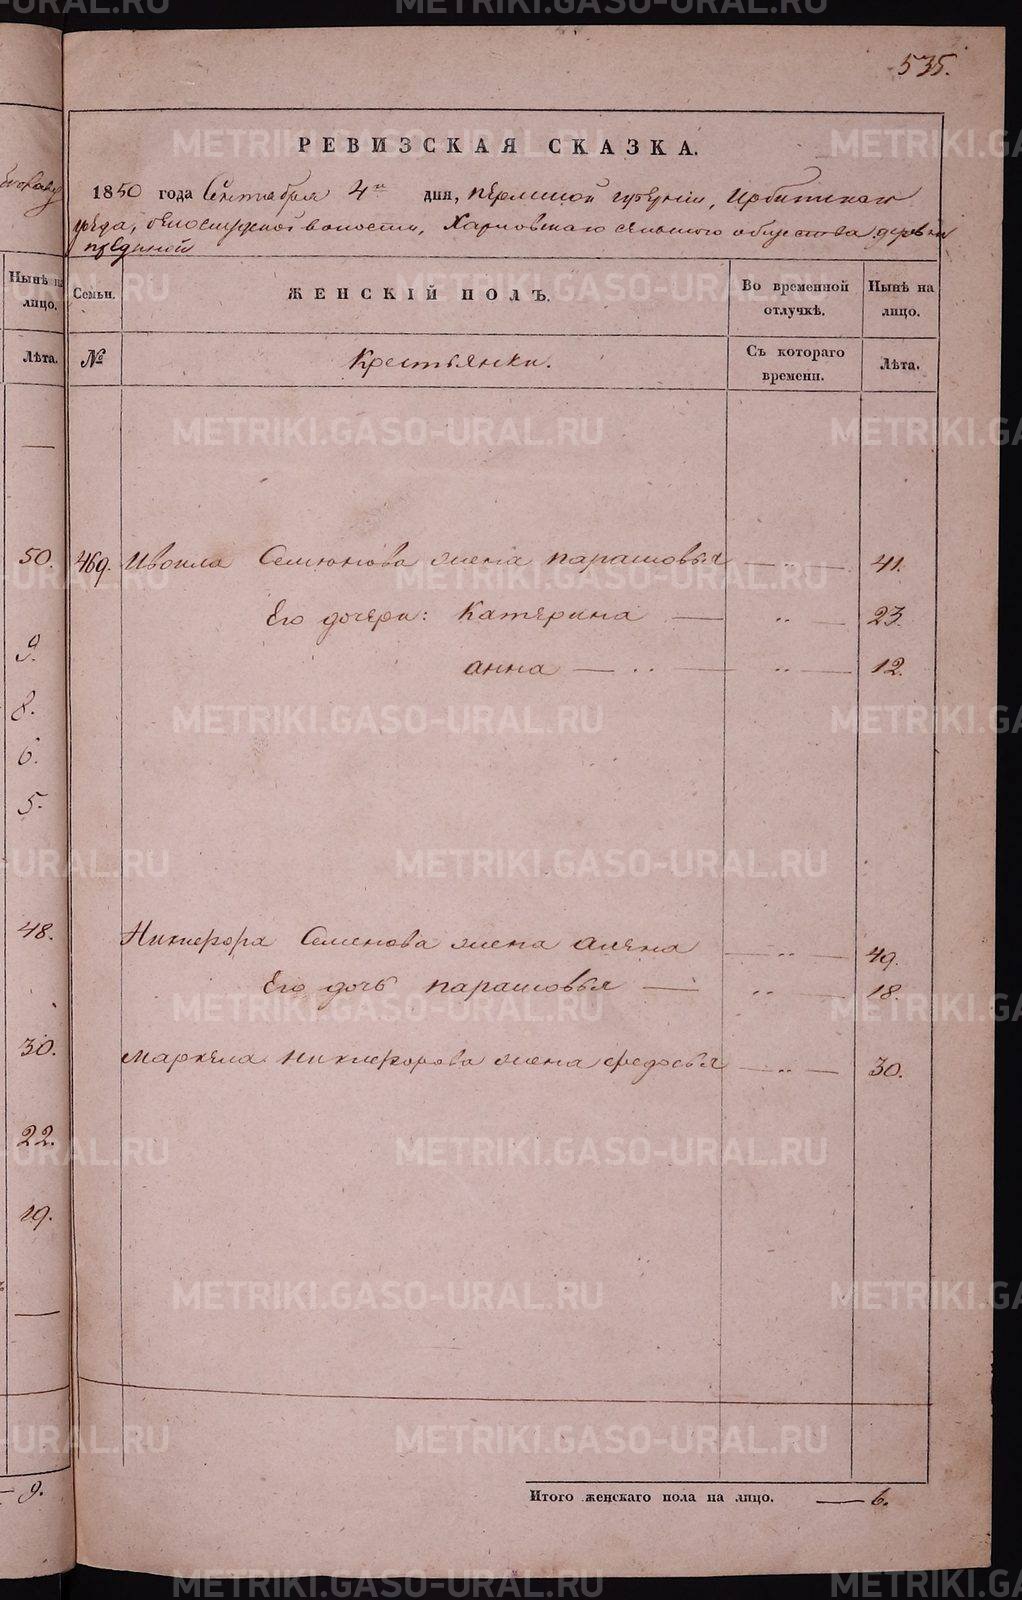 535.
РЕВИЗСКАЯ СКАЗКА.
1850 года Сентября 4го дня, Пермской губернии, Ирбитскаго
уезда, белослудской волости, Харловскаго сельскаго общества деревни
Семьи. ЖЕНСКІЙ ПОЛЪ. Во временной отлучкѣ. Нынѣ на лицо.
№ Крестьянки. Съ котораго времени. Лѣта.
469. Ивоила Семионова жена парасковья — „ — 41.
Его дочери: Катерина — „ — 23.
анна — „ — „ — 12.
Никифора Семенова жена алена — „ — 49.
Его дочь парасковья — „ — 18.
Маркела Никифорова жена федосья — „ — 30.
Итого женскаго пола на лицо. — 6.
Нынѣ на лицо.
Лѣта.
—
50.
9.
8.
6.
5.
48.
30.
22.
19.
—
— 9.
METRIKI.GASO-URAL.RU